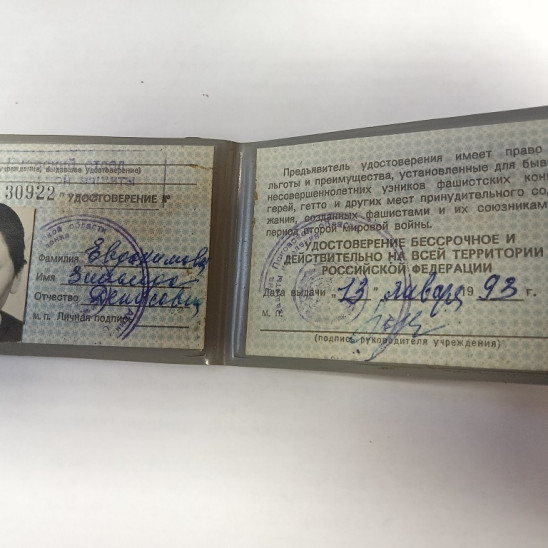 (учреждения, выдавшего удостоверение)
30922 УДОСТОВЕРЕНИЕ
Фамилия Евдокимова
Имя Зинаида
Отчество Денисовна
м. п. Личная подпись
Предъявитель удостоверения имеет право
льготы и преимущества, установленные для быв
несовершеннолетних узников фашистских кон
герей, гетто и других мест принудительного сод
жания, созданных фашистами и их союзникам
период второй мировой войны.
УДОСТОВЕРЕНИЕ БЕССРОЧНОЕ И
ДЕЙСТВИТЕЛЬНО НА ВСЕЙ ТЕРРИТОРИИ
РОССИЙСКОЙ ФЕДЕРАЦИИ
Дата выдачи „13 января 1993 г.
М. П.
(подпись руководителя учреждения)